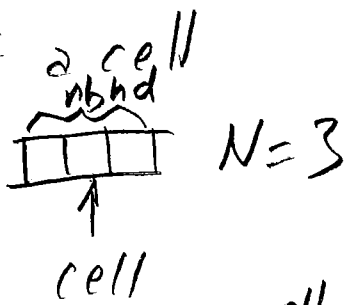 a cell
nbhd
N=3
cell